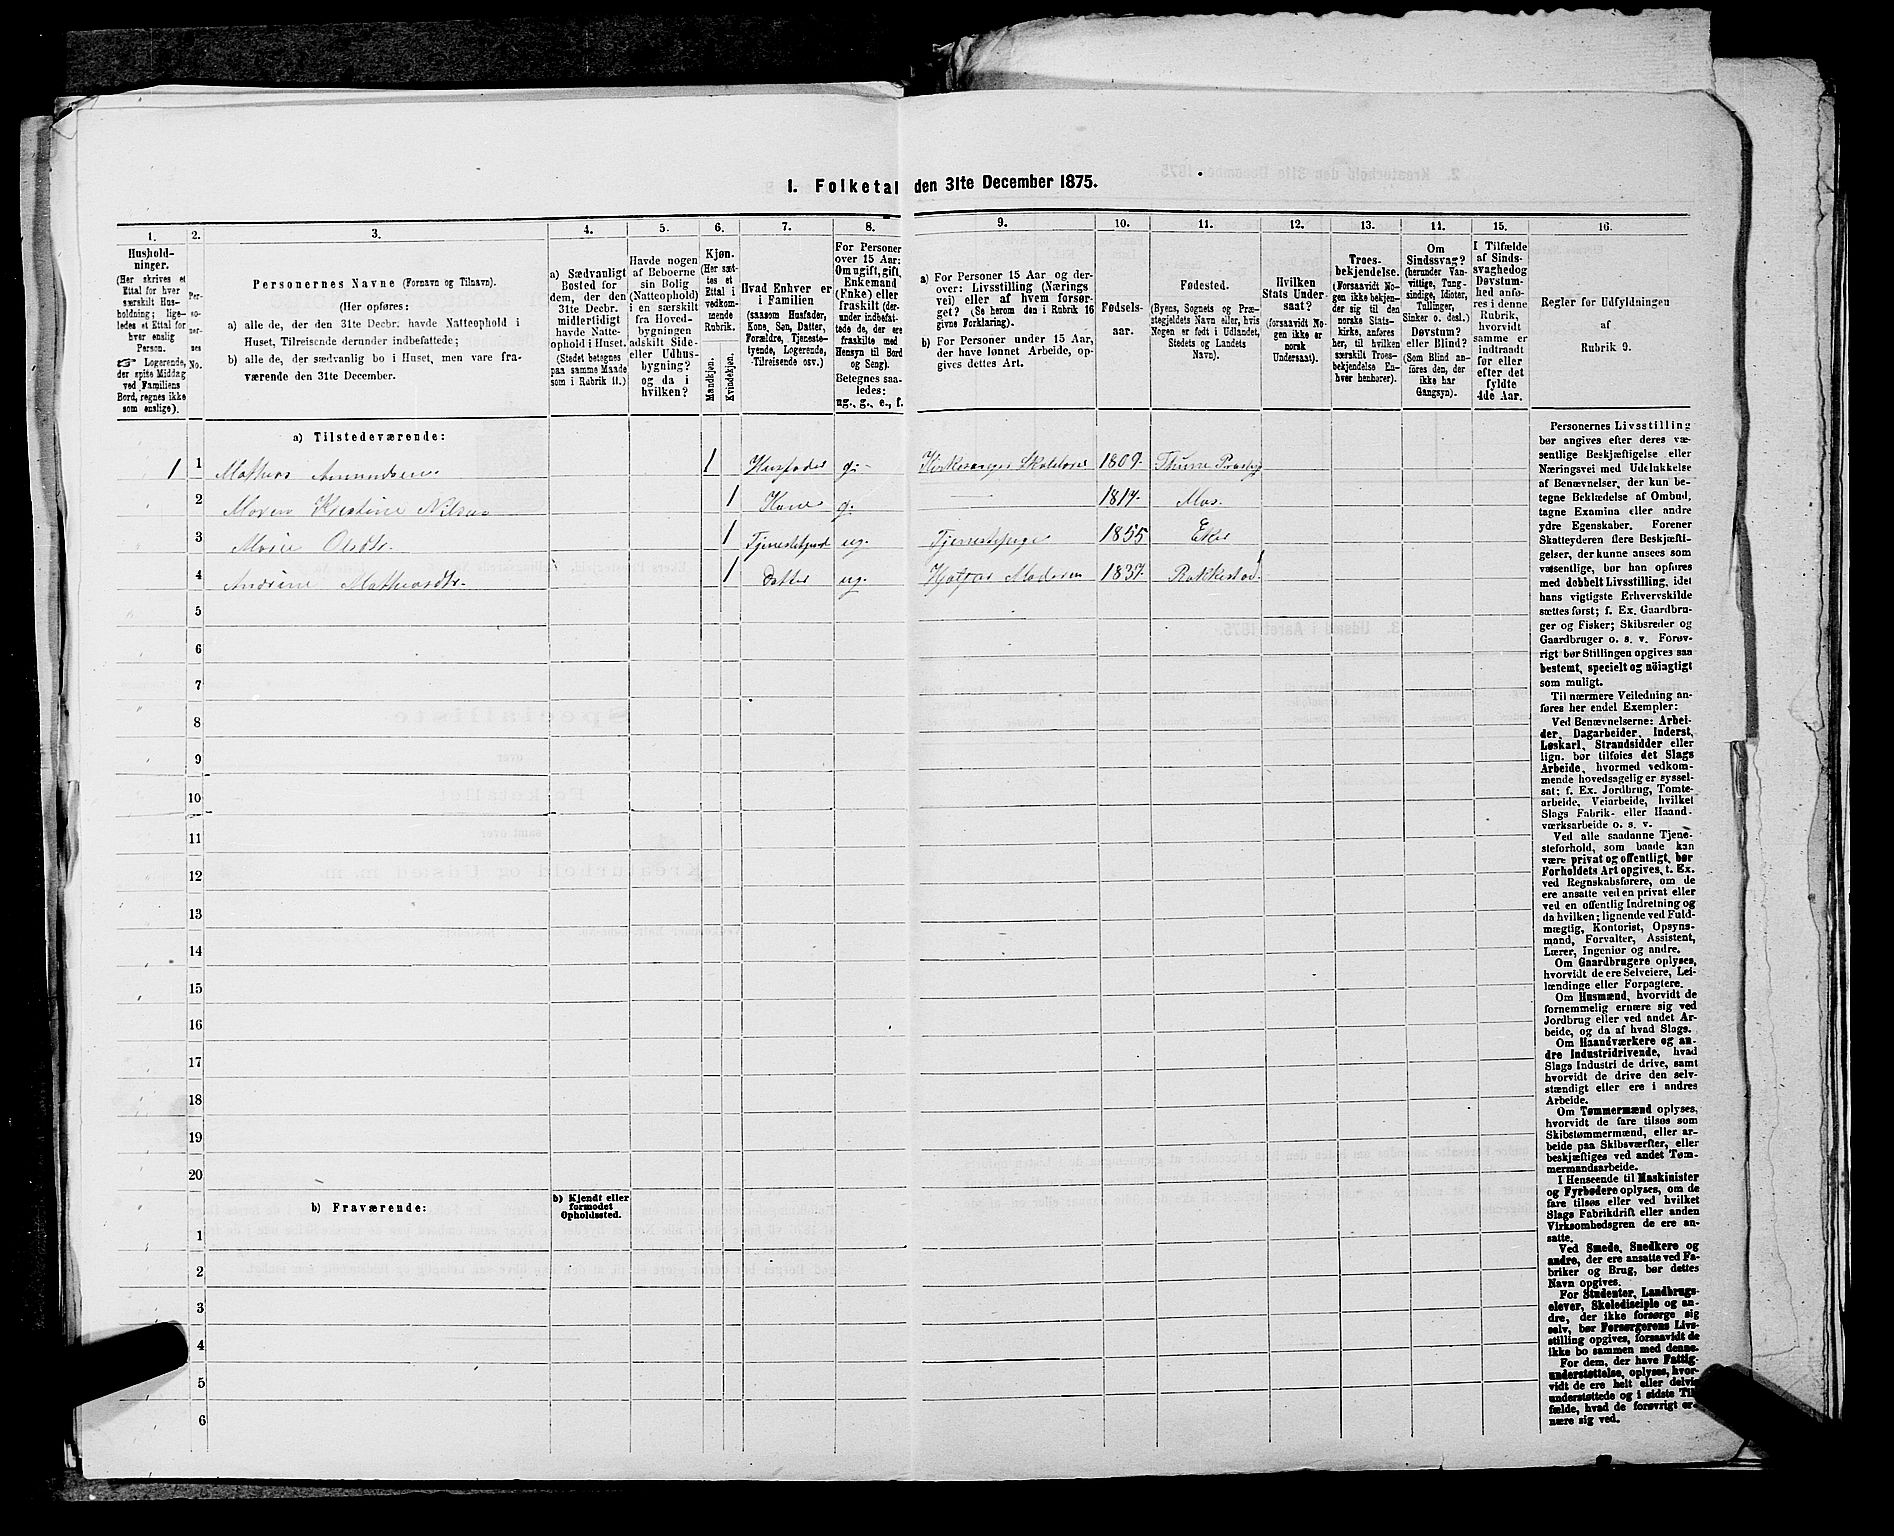 1. Folketal den 31te December 1875.
1.
Hushold-
ninger.
(Her skrives et
Ettal for hver
særskilt Hus-
holdning; lige-
ledes et Ettal for
hver enslig
Person.
☞ Logerende,
der spise Middag
ved Familiens
Bord, regnes ikke
som enslige).
2.
Per-
so-
ner-
nes
No.
3.
Personernes Navne (Fornavn og Tilnavn).
(Her opføres:
a) alle de, der den 31te Decbr. havde Natteophold i
Huset, Tilreisende derunder indbefattede;
b) alle de, der sædvanlig bo i Huset, men vare fra-
værende den 31te December.
4.
a) Sædvanligt
Bosted for
dem, der den
31te Decbr.
midlertidigt
havde Natte-
ophold i Huset.
(Stedet betegnes
paa samme Maade
som i Rubrik 11.)
5.
Havde nogen
af Beboerne
sin Bolig
(Natteophold)
i en særskilt
fra Hoved-
bygningen
adskilt Side-
eller Udhus-
bygning?
og da i
hvilken?
6.
Kjøn.
(Her sæt-
tes et
Ettal i
vedkom-
mende
Rubrik.
Mandkjøn.
Kvindekjøn.
7.
Hvad Enhver er
i Familien
(saasom Husfader,
Kone, Søn, Datter,
Forældre, Tjeneste-
tyende, Logerende,
Tilreisende osv.)
8.
For Personer
over 15 Aar:
Om ugift, gift,
Enkemand
(Enke) eller
fraskilt (der-
under indbefat-
tede de, der ere
fraskilte med
Hensyn til Bord
og Seng).
Betegnes saa-
ledes:
ug., g., e., f.
9.
a) For Personer 15 Aar og der-
over: Livsstilling (Nærings
vei) eller af hvem forsør-
get? (Se herom den i Rubrik 16
givne Forklaring).
b) For Personer under 15 Aar,
der have lønnet Arbeide, op-
gives dettes Art.
10.
Fødsels-
aar.
11.
Fødested.
(Byens, Sognets og Præ-
stegjeldets Navn eller, hvis
Nogen er født i Udlandet,
Stedets og Landets
Navn).
12.
Hvilken
Stats Under-
saat?
(forsaavidt No-
gen ikke er
norsk
Undersaat).
13.
Troes-
bekjendelse.
(Forsaavidt No-
gen ikke bekjen-
der sig til den
norske Stats-
kirke, anføres
her, til hvilken
særskilt Troes-
bekjendelse En-
hver henhører).
14.
Om
Sindssvag?
(herunder Van-
vittige, Tung-
sindige, Idioter,
Tullinger,
Sinker o. desl.)
Døvstum?
eller Blind?
(Som Blind an-
føres den, der
ikke har
Gangsyn).
15.
I Tilfælde
af Sinds-
svaghed og
Døvstum-
hed anfø-
res i denne
Rubrik,
hvorvidt
samme er
indtraadt
før eller
efter det
fyldte
4de Aar.
16.
Regler for Udfyldningen
af
Rubrik 9.
a) Tilstedeværende:
1 1 Mathias Amundsen 1 Husfader g. Kirkesanger Skolelærer 1809 Thune Præstgj
2 Maren Kristine Nilsen 1 Kone g. 1817. Mos.
3 Marie Olsdtr. 1 ug. Tjenestepige 1855 Eker
4 Andrine Mathiasdtr. 1 Datter ug. 1837. Rakkestad.
5
6
7
8
9
10
11
12
13
14
15
16
17
18
19
20
b) Fraværende:
b) Kjendt eller
formodet
Opholdssted.
1
2
3
4
5
6
Personernes Livsstilling
bør angives efter deres væ-
sentlige Beskjæftigelse eller
Næringsvei med Udelukkelse
af Benævnelser, der kun be-
tegne Beklædelse af Ombud,
tagne Examina eller andre
ydre Egenskaber. Forener
Skatteyderen flere Beskjæfti-
gelser, der kunne ansees som
væsentlige, bør han opføres
med dobbelt Livsstilling, idet
hans vigtigste Erhvervskilde
sættes først; f. Ex. Gaardbru-
ger og Fisker; Skibsreder og
Gaardbruger o. s. v. Forøv-
rigt bør Stillingen opgives saa
bestemt, specielt og nöiagtigt
som muligt.
Til nærmere Veiledning an-
føres her endel Exempler:
Ved Benævnelserne: Arbei-
der, Dagarbeider, Inderst,
Løskarl, Strandsidder eller
lign. bør tilføies det Slags
Arbeide, hvormed vedkom-
mende hovedsagelig er syssel-
sat; f. Ex. Jordbrug, Tomte-
arbeide, Veiarbeide, hvilket
Slags Fabrik- eller Haand-
værksarbeide o. s. v.
Ved alle saadanne Tjene-
steforhold, som baade kan
være privat og offentligt, bør
Forholdets Art opgives, t. Ex.
ved Regnskabsførere, om de
ere ansatte ved en privat eller
ved en offentlig Indretning og
da hvilken; lignende ved Fuld-
mægtig, Kontorist, Opsyns-
mand, Forvalter, Assistent,
Lærer, Ingeniør og andre.
Om Gaardbrugere oplyses,
hvorvidt de ere Selveiere, Lei-
lændinge eller Forpagtere.
Om Husmænd, hvorvidt de
fornemmelig ernære sig ved
Jordbrug eller ved andet Ar-
beide, og da af hvad Slags.
Om Haandværkere og an-
dre Industridrivende, hvad
Slags Industri de drive, samt
hvorvidt de drive den selv-
stændigt eller ere i andres
Arbeide.
Om Tømmermænd oplyses,
hvorvidt de fare tilsøs som
Skibstømmermænd, eller ar-
beide paa Skibsværfter, eller
beskjæftiges ved andet Tøm-
mermandsarbeide.
I Henseende til Maskinister
og Fyrbødere oplyses, om de
fare tilsøs eller ved hvilket
Slags Fabrikdrift eller anden
Virksomhedsgren de ere an-
satte.
Ved Smede, Snedkere og
andre, der ere ansatte ved Fa-
briker og Brug, bør dettes
Navn opgives.
For Studenter, Landbrugs-
elever, Skoledisciple og an-
dre, der ikke forsørge sig
selv, bør Forsørgerens Livs-
stilling opgives, forsaavidt de
ikke bo sammen med denne.
For dem, der have Fattig-
understøttelse, oplyses, hvor-
vidt de ere helt eller delvis
understøttede og i sidste Til-
fælde, hvad de forøvrigt er-
nære sig ved.